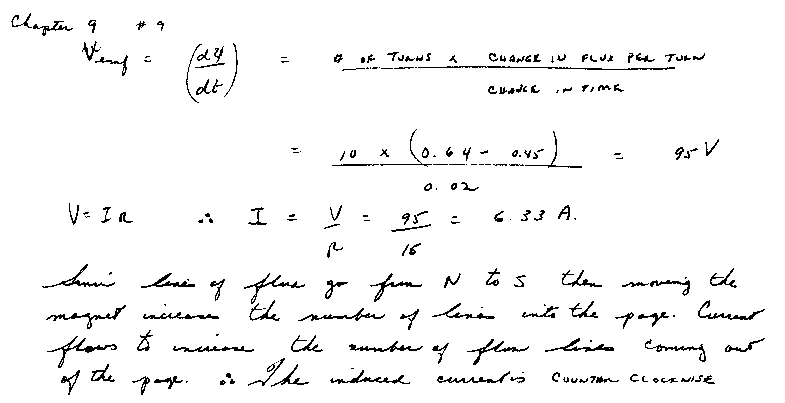 Chapter 9 # 9
Vemf = (dψ/dt) = # OF TURNS x CHANGE IN FLUX PER TURN / CHANGE IN TIME
= 10 x (0.64 - 0.45) / 0.02 = 95 V
V = IR ∴ I = V/R = 95/15 = 6.33 A.
Since lines of flux go from N to S then moving the
magnet increases the number of lines into the page. Current
flows to increase the number of flux lines coming out
of the page. ∴ The induced current is COUNTER CLOCKWISE